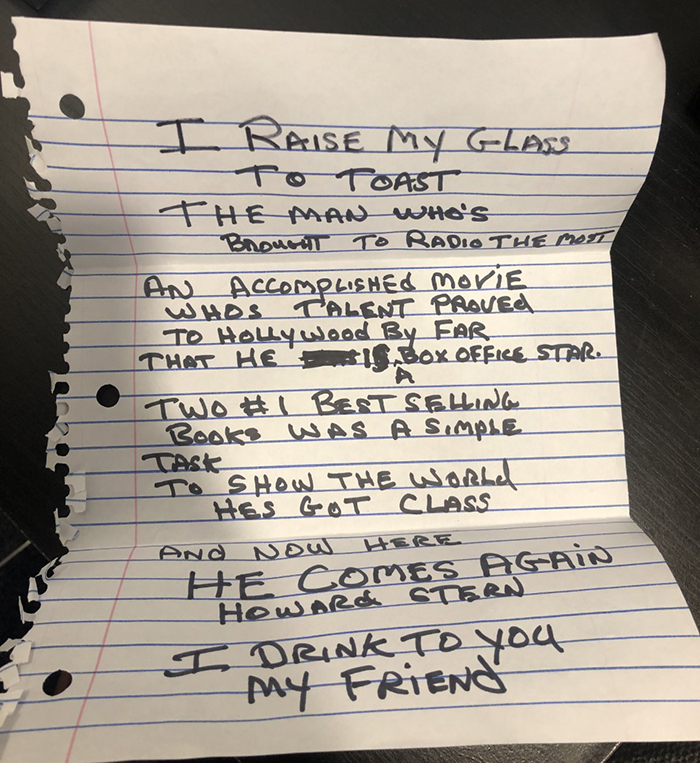 I RAISE MY GLASS
TO TOAST
THE MAN WHO'S
BROUGHT TO RADIO THE MOST
AN ACCOMPLISHED MOVIE
WHOS TALENT PROVED
TO HOLLYWOOD BY FAR
THAT HE IS A BOX OFFICE STAR.
TWO #1 BEST SELLING
BOOKS WAS A SIMPLE
TASK
TO SHOW THE WORLD
HES GOT CLASS
AND NOW HERE
HE COMES AGAIN
HOWARD STERN
I DRINK TO YOU
MY FRIEND